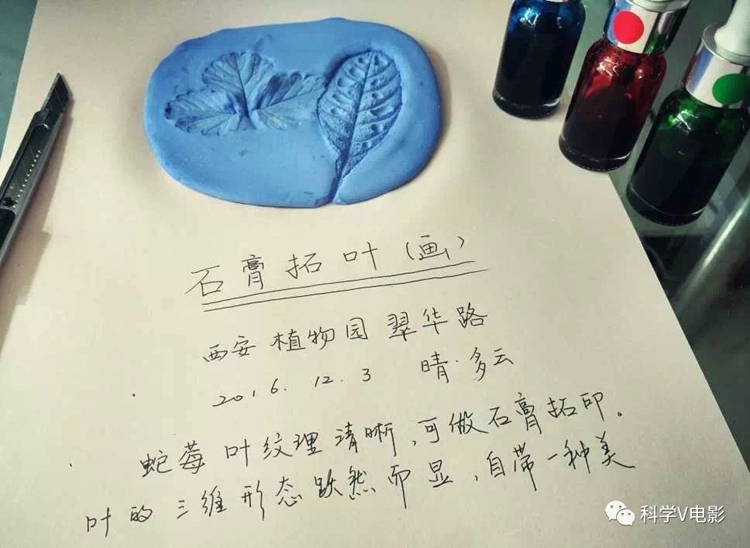 石膏拓叶(画)
西安植物园 翠华路
2016.12.3 晴·多云
蛇莓叶纹理清晰,可做石膏拓印。
叶的三维形态跃然而显,自带一种美
科学V电影